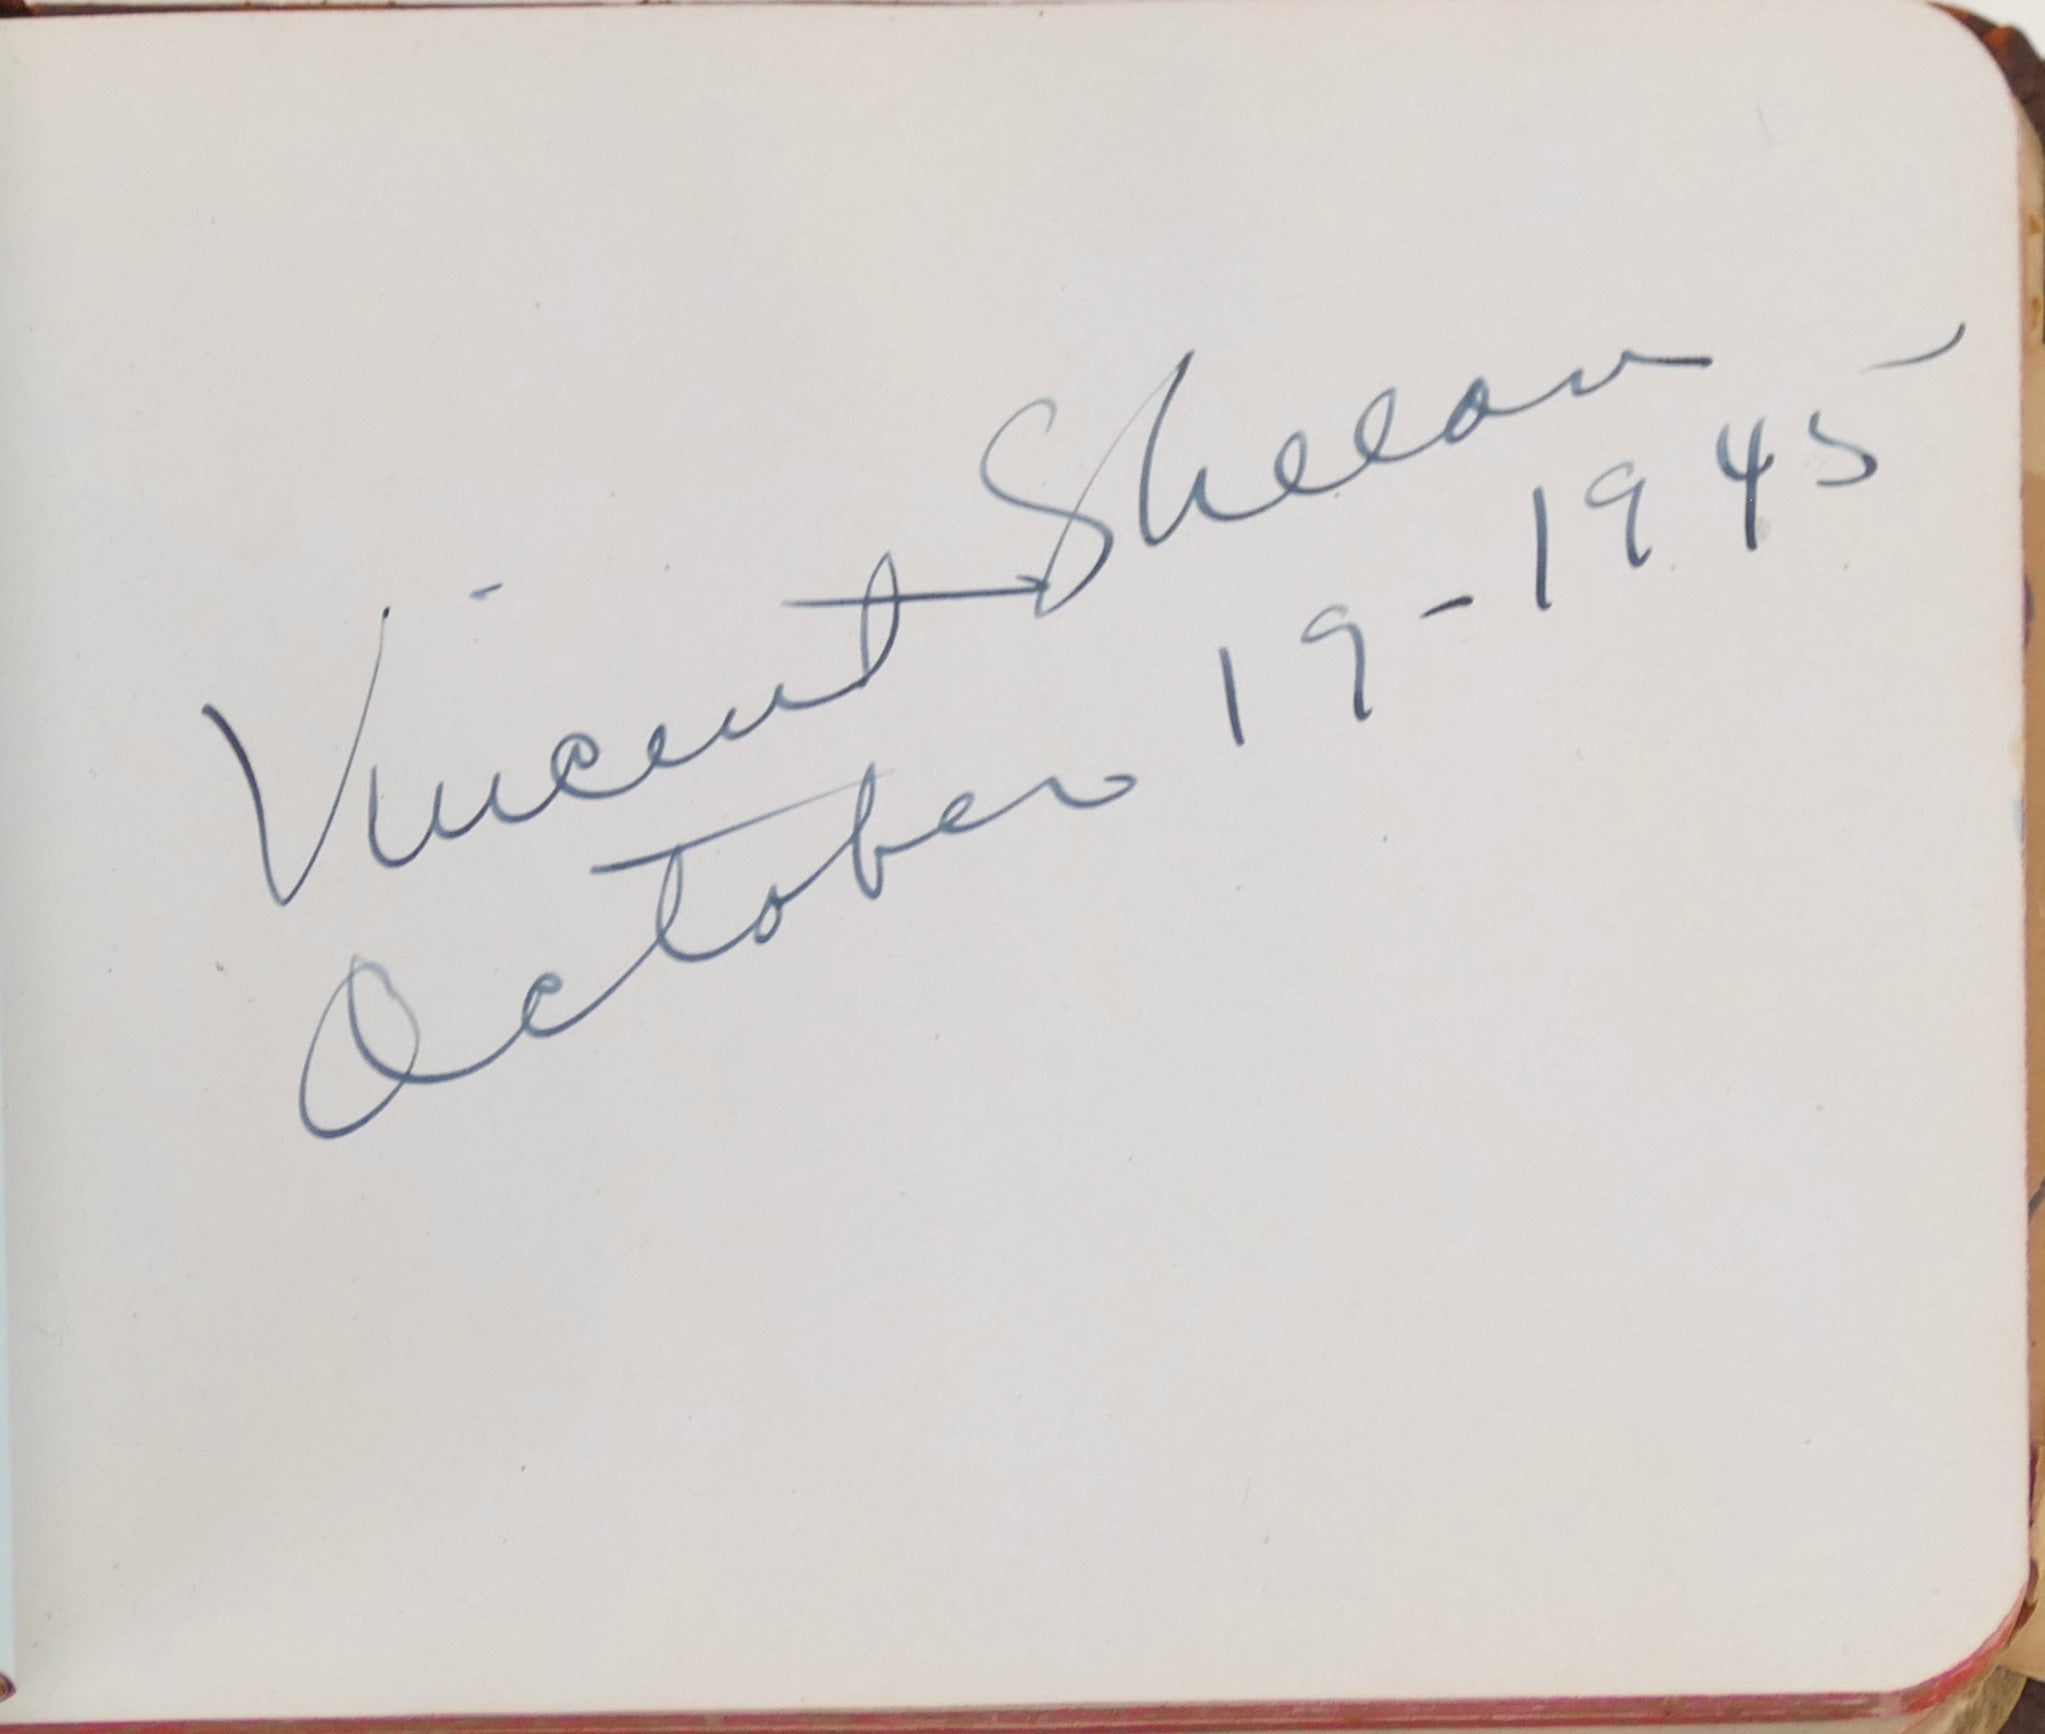 Vincent Sheean
October 19-1945